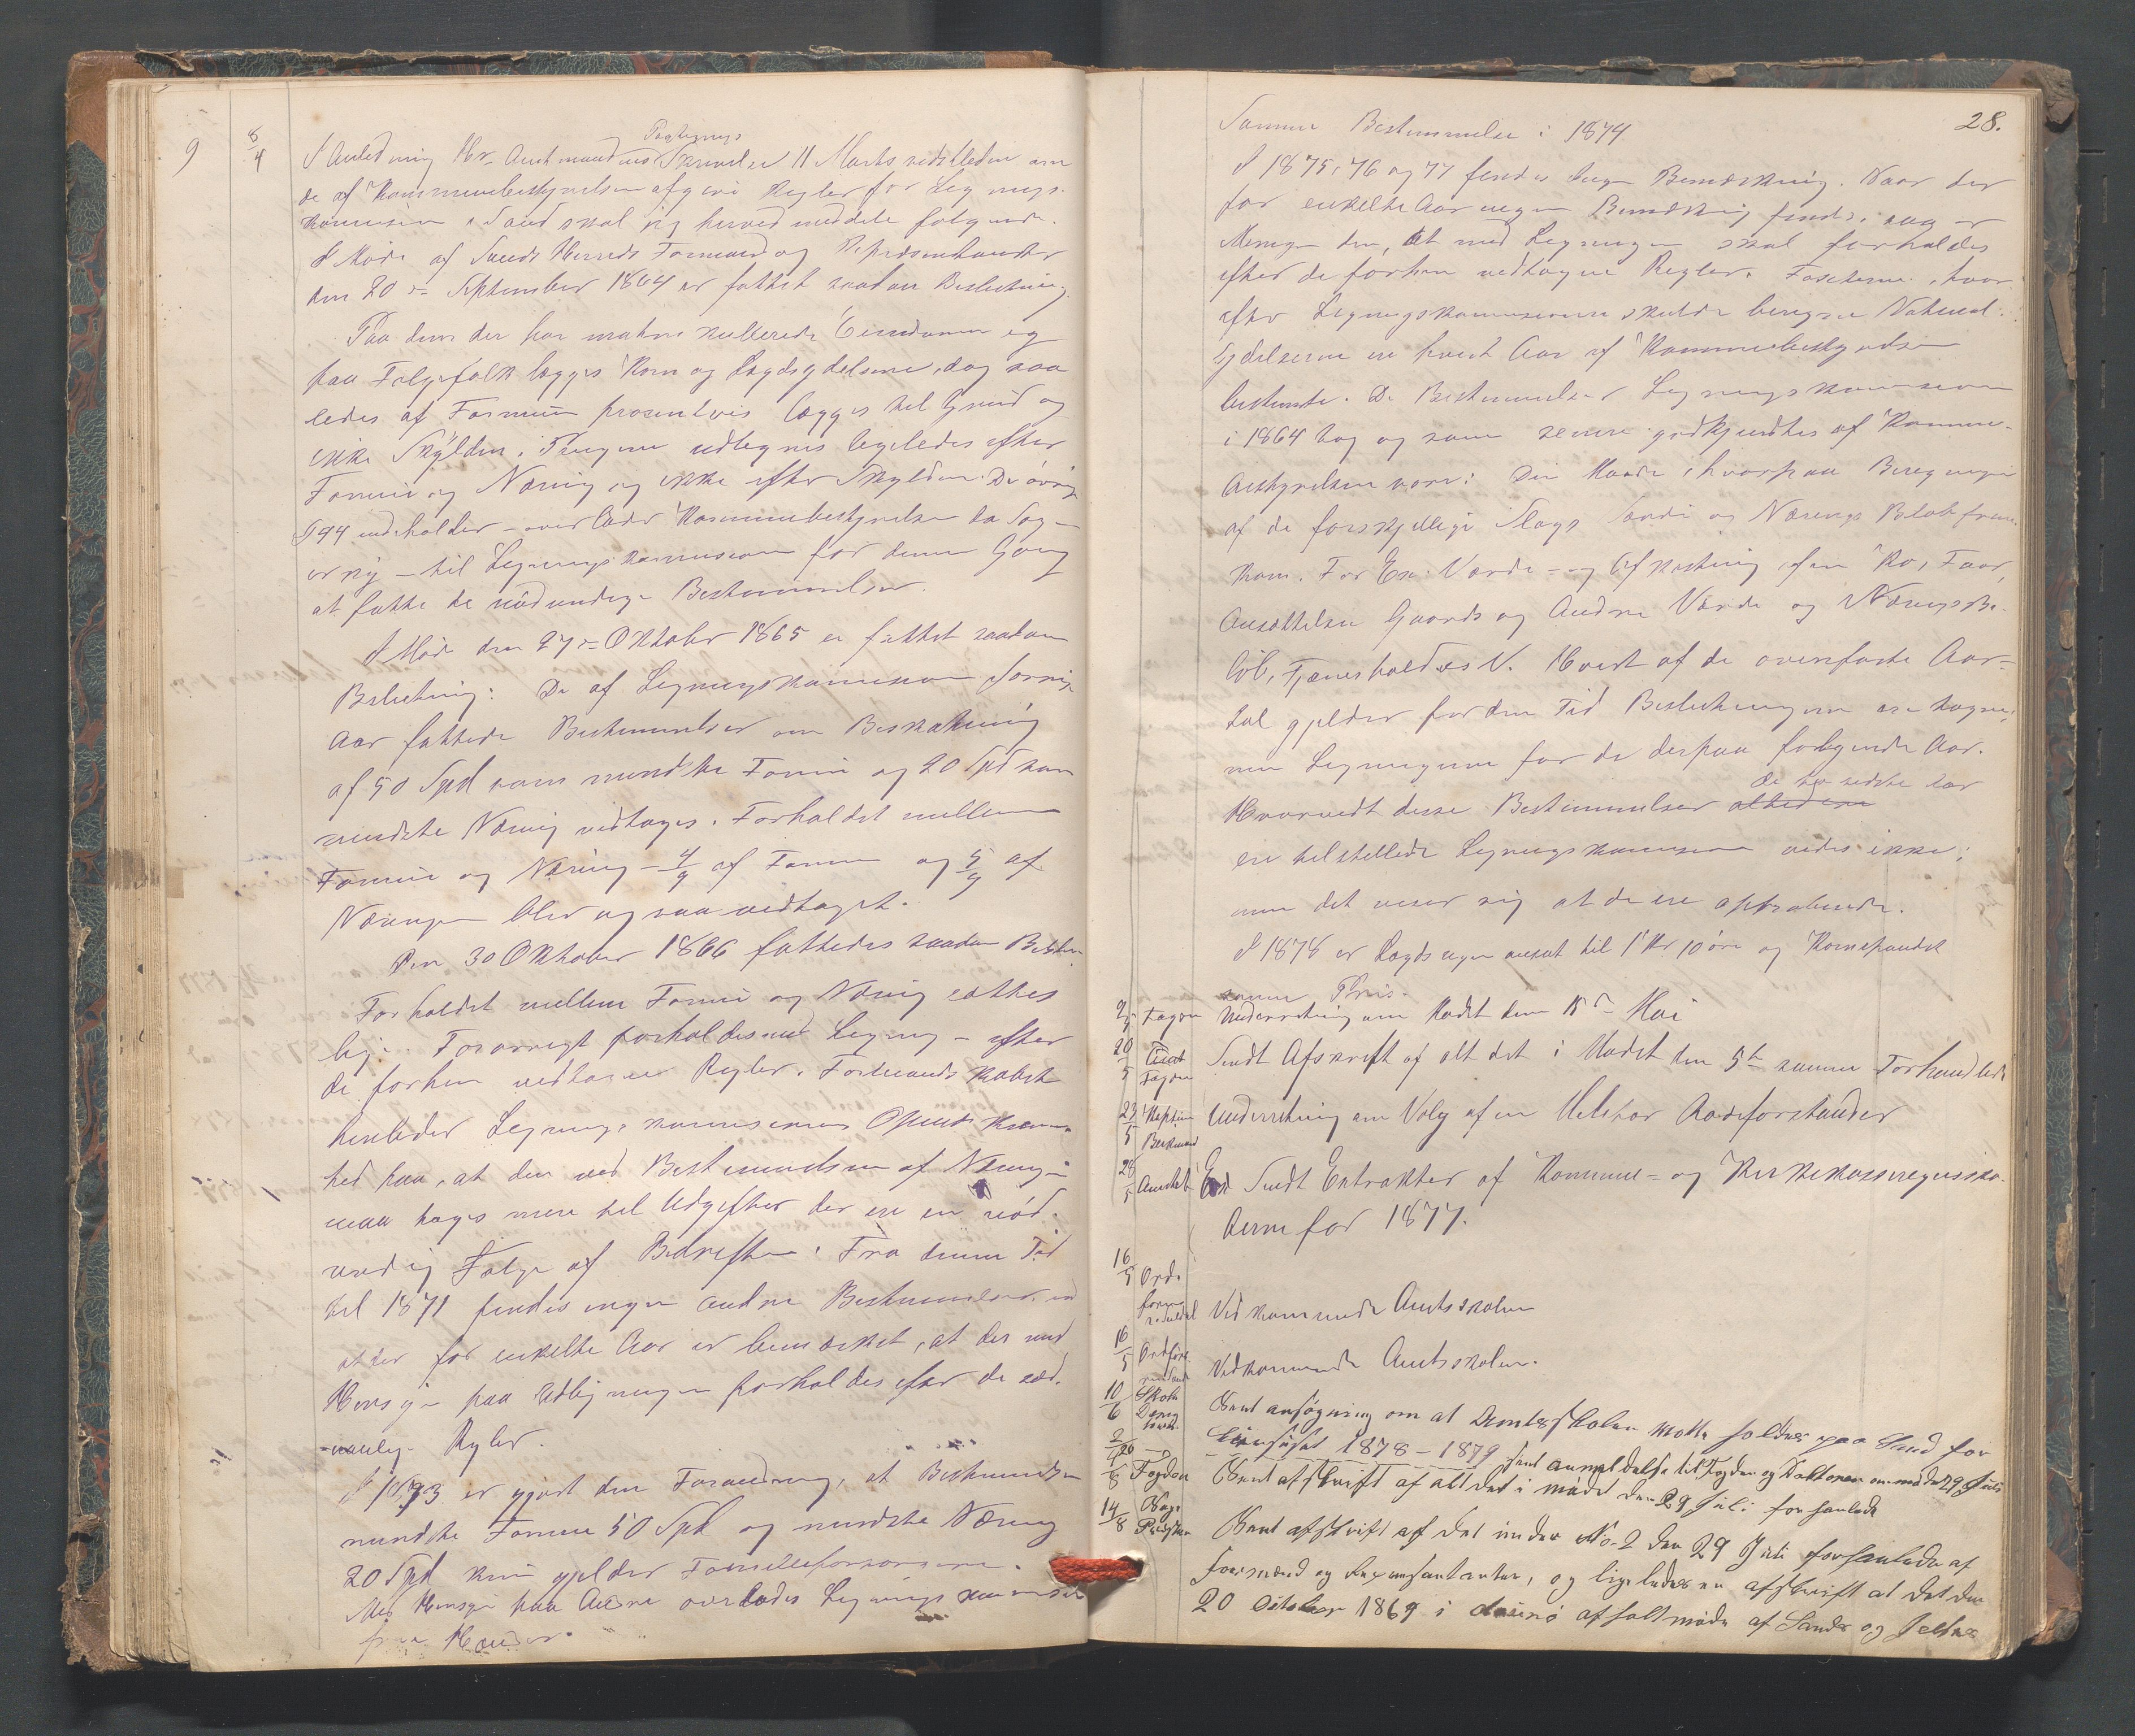 9 8/4
Paategnings
I Anledning Hr. Amtmandens Skrivelse 11 Marts sidstleden om
de af Kommunebestyrelsen afgivne Regler for Lignings-
kommisionen i Sand skal jeg herved meddele følgende.
I Møde af Sands Herreds Formænd og Repræsentanter
den 20de September 1864 er fattet saadan Beslutning
Paa dem der har matrikullerede Eiendomme og
paa Folgefolk lægges Korn og Lægdsydelserne, dog saa
ledes af Formuen prosentvis lægges til Grund og
ikke Skylden. Tingene udlignes ligeledes efter
Formue og Næring og ikke efter Skylden. De øvrige
indeholder - overlader Kommunebestyrelsen da Sagen
er ny - til Ligningskommisionen for denne Gang
at fatte de nødvendige Bestemmelser.
I Møde den 27de Oktober 1865 er fattet saadan
Beslutning: De af Ligningskommisionen forrige
Aar fattede Bestemmelser om Beskatning
af 50 Spd som mindste Formue og 20 Spd som
mindste Næring vedtages. Forholdet mellem
Formue og Næring - 4/9 af Formue og 5/9 af
Næringen blev og saa vedtaget.
Den 30 Oktober 1866 fattedes saadan Beslutn.
Forholdet mellem Formue og Næring sættes
lige. Forøvrigt forholdes med Ligning - efter
de forhen vedtagne Regler. Formandskabet
henleder Ligningskommisionens Opmærksom-
hed paa, at den ved Bestemmelsen af Næringen
maa tages mere til Udgifter der ere en nød-
vendig Følge af Bedriften. Fra denne Tid
til 1871 findes ingen andre Bestemmelser end
at der for enkelte Aar er bemærket, at der med
Hensyn paa Udligningen forholdes efter de sæd-
vanlige Regler.
I 1873 er gjort den Forandring, at Bestemmelsen
mindste Formue 50 Spd og mindste Næring
20 Spd kun gjelder Familieforsørgere.
Med Hensyn paa Andre overlades Ligningskommisionen
frie Hænder.
28.
Samme Bestemmelse i 1874
I 1875, 76 og 77 findes ingen Bemærkning. Naar der
for enkelte Aar ingen Bemærkning findes, saa er
Meningen den, at med Ligningen skal forholdes
efter de forhen vedtagne Regler. Taxterne, hvor
efter Ligningskommisionen skulde beregne Natural-
ydelserne ere hvert Aar af Kommunebestyrelsen
bestemte. De Bestemmelser Ligningskommisionen
i 1864 tog og som senere godkjendtes af Kommune-
bestyrelsen vare: Den Maade, hvorpaa Beregningen
af de forskjellige Slags Værdi og Nærings Beløb frem
kom. For Ex: Værdi- og Afkastning af en Ko, Faar,
Ansættelsen Gaards og Andre Værde og Nærings Be-
løb, Tjenesholdes V. Hvert af de ovenførte Aars-
tal gjelder for den Tid Beslutningerne ere tagne,
men Ligningerne for de derpaa følgende Aar.
de to sidste Aar
Hvorvidt disse Bestemmelser altid ere
ere tilstillede Ligningskommisionen vides ikke;
men det viser sig at de ere approberede.
I 1878 er Lægdsugen ansat til 1 Kr 10 øre og Kornspandet
samme Priis.
9/5 Fogden Underretning om Mødet den 15de Mai
20/5 Amt Fogden Sendt Afskrift af alt det i Mødet den 5te samme Forhandlede
23/5 Underretning om Valg af en Rode forstander
28/5 Amtet Sendt Extrakter af Kommune- og Kirkekasseregnska-
berne for 1877.
16/5 Ord
Vedkommende Amtsskolen
16/5 Ordfør. Vedkommende Amtsskolen.
10/6 Skole Sent ansøgning om at Amtsskolen motte holdes paa Sand for
1878 - 1879 Sent anmeldelse til Fogden og Doktoren om mødet 29 Juli
8 Fogden Sent afskrift af alt det i mødet den 29 Juli forhanlede
14/8 Sogne Præsten Sent afskrift af det under No 2 den 29 Juli forhanlede af
Formænd og Representanter, og ligeledes en afskrift at det den
20 October 1869 i afholt møde af Sands og Jelsøe